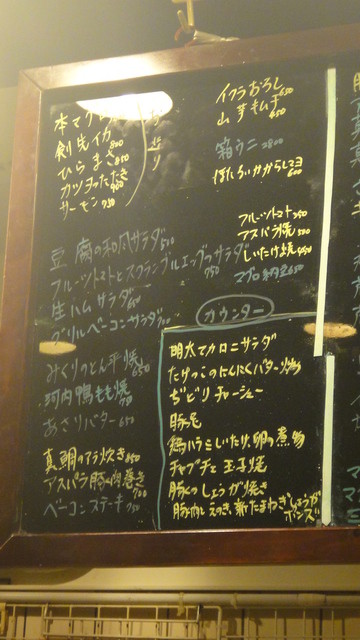 本マグロ
剣先イカ 800
ひらまさ 850
カツヲたたき 900
サーモン 750
イクラおろし 650
山芋キムチ 450
箱ウニ 2800
ほたるいかからしマヨ 600
フルーツトマト 350
アスパラ焼 500
しいたけ焼 450
マグロ納豆 650
豆腐の和風サラダ 500
フルーツトマトとスクランブルエッグのサラダ 750
生ハムサラダ 650
グリルベーコンサラダ 700
みぐりのとん平焼 650
河内鴨もも焼
あさりバター 650
真鯛のアラ炊き 850
アスパラ豚肉巻き 700
ベーコンステーキ 750
カウンター
明太マカロニサラダ
たけのこのにんにくバター炒め
ぢどりチャーシュー
豚足
鶏ハラミしいたけ、卵の煮物
チャプチェ 玉子焼
豚くのしょうが焼き
豚肉とえのき、新たまねぎしょうがポンズ